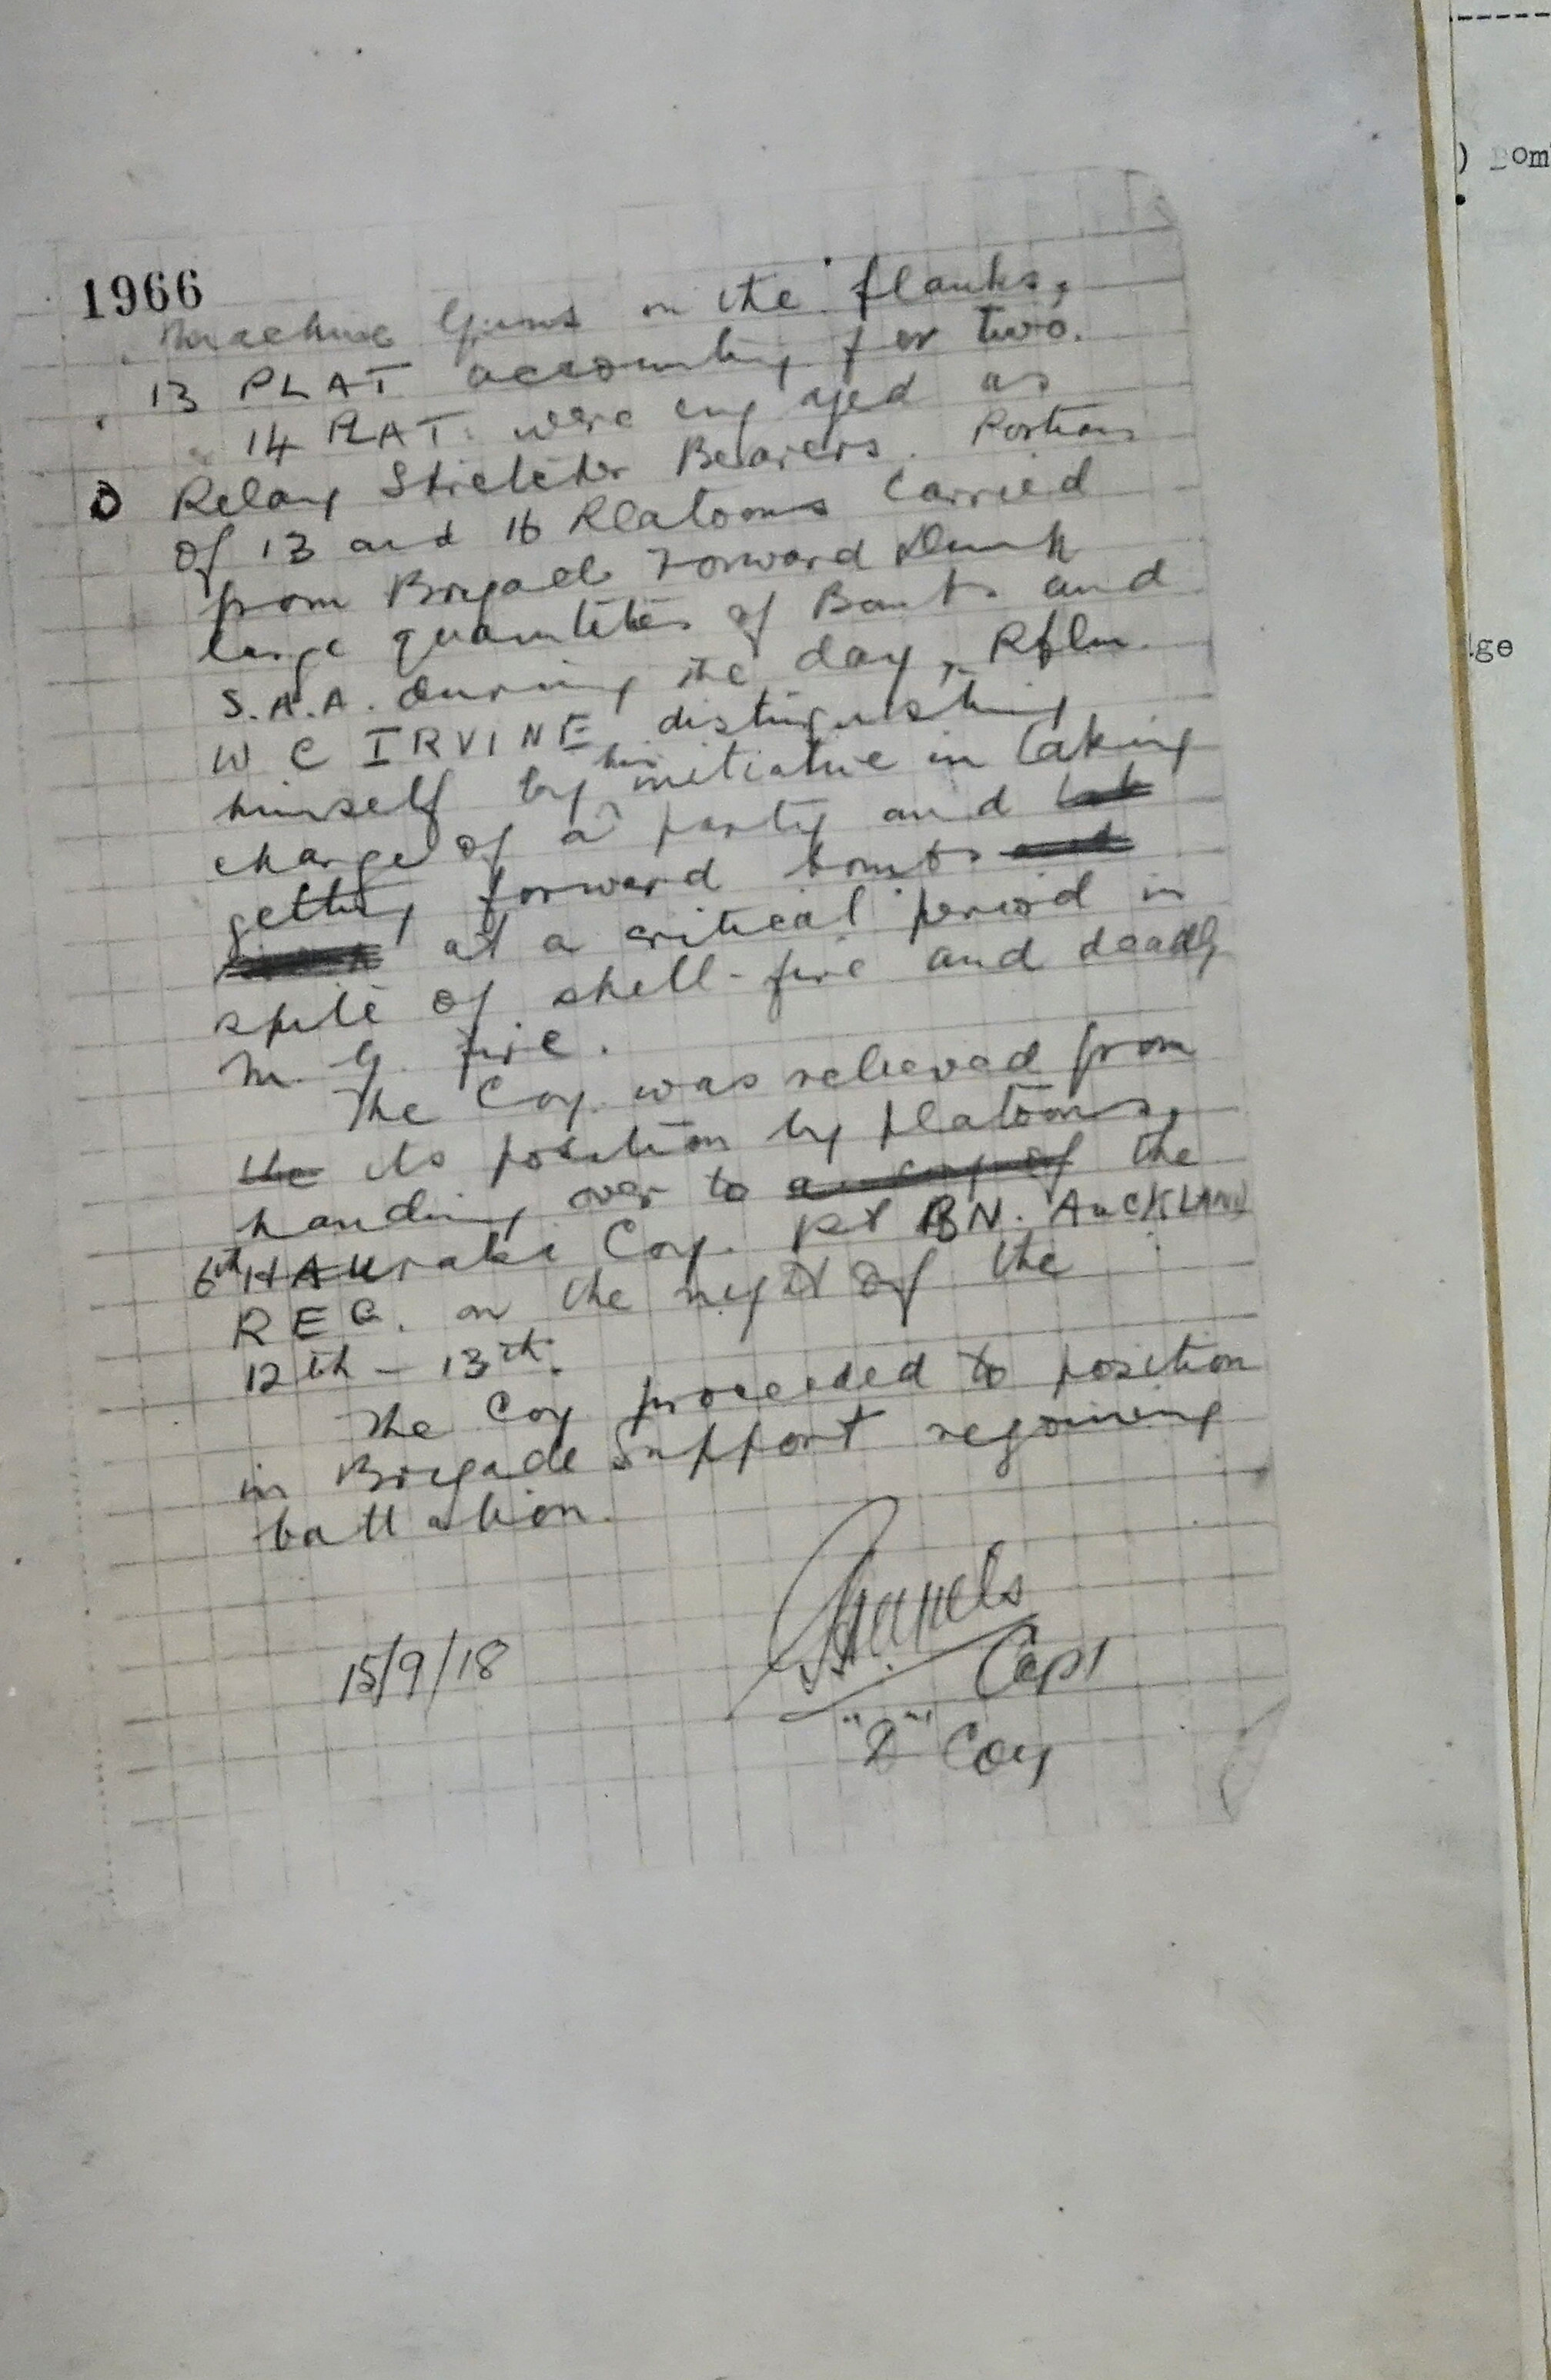 1966
Machine Guns on the flanks,
13 PLAT accounting for two.
14 PLAT. were engaged as
Relay Stretcher Bearers. Portions
of 13 and 16 Platoons carried
from Brigade Forward Dump
large quantities of Bombs and
S.A.A. during the day, Rflm.
W C IRVINE distinguishing
himself by his initiative in taking
charge of a party and
getting forward bombs
at a critical period in
spite of shell-fire and deadly
M. G. fire.
The Coy. was relieved from
the its position by platoons,
handing over to a coy of the
6th HAUraki Coy. 1st BN. AUCKLAND
REG. on the night of the
12th - 13th.
The Coy proceeded to position
in Brigade Support rejoining
battalion.
15/9/18
Capt
Coy
) Bom
.
ge